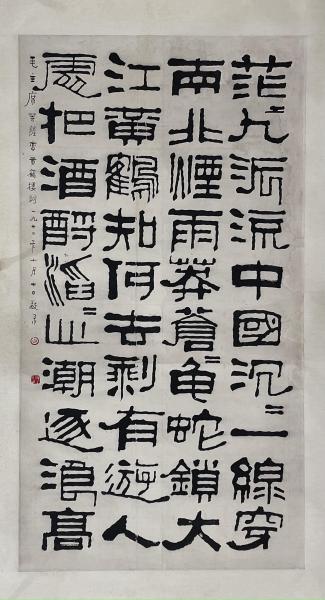 茫〻九派流中國沉〻一線穿
南北煙雨莽蒼〻龜蛇鎖大
江黃鶴知何去剩有遊人
處把酒酹滔〻心潮逐浪高
毛主席菩薩蠻黃鶴樓詞一九七